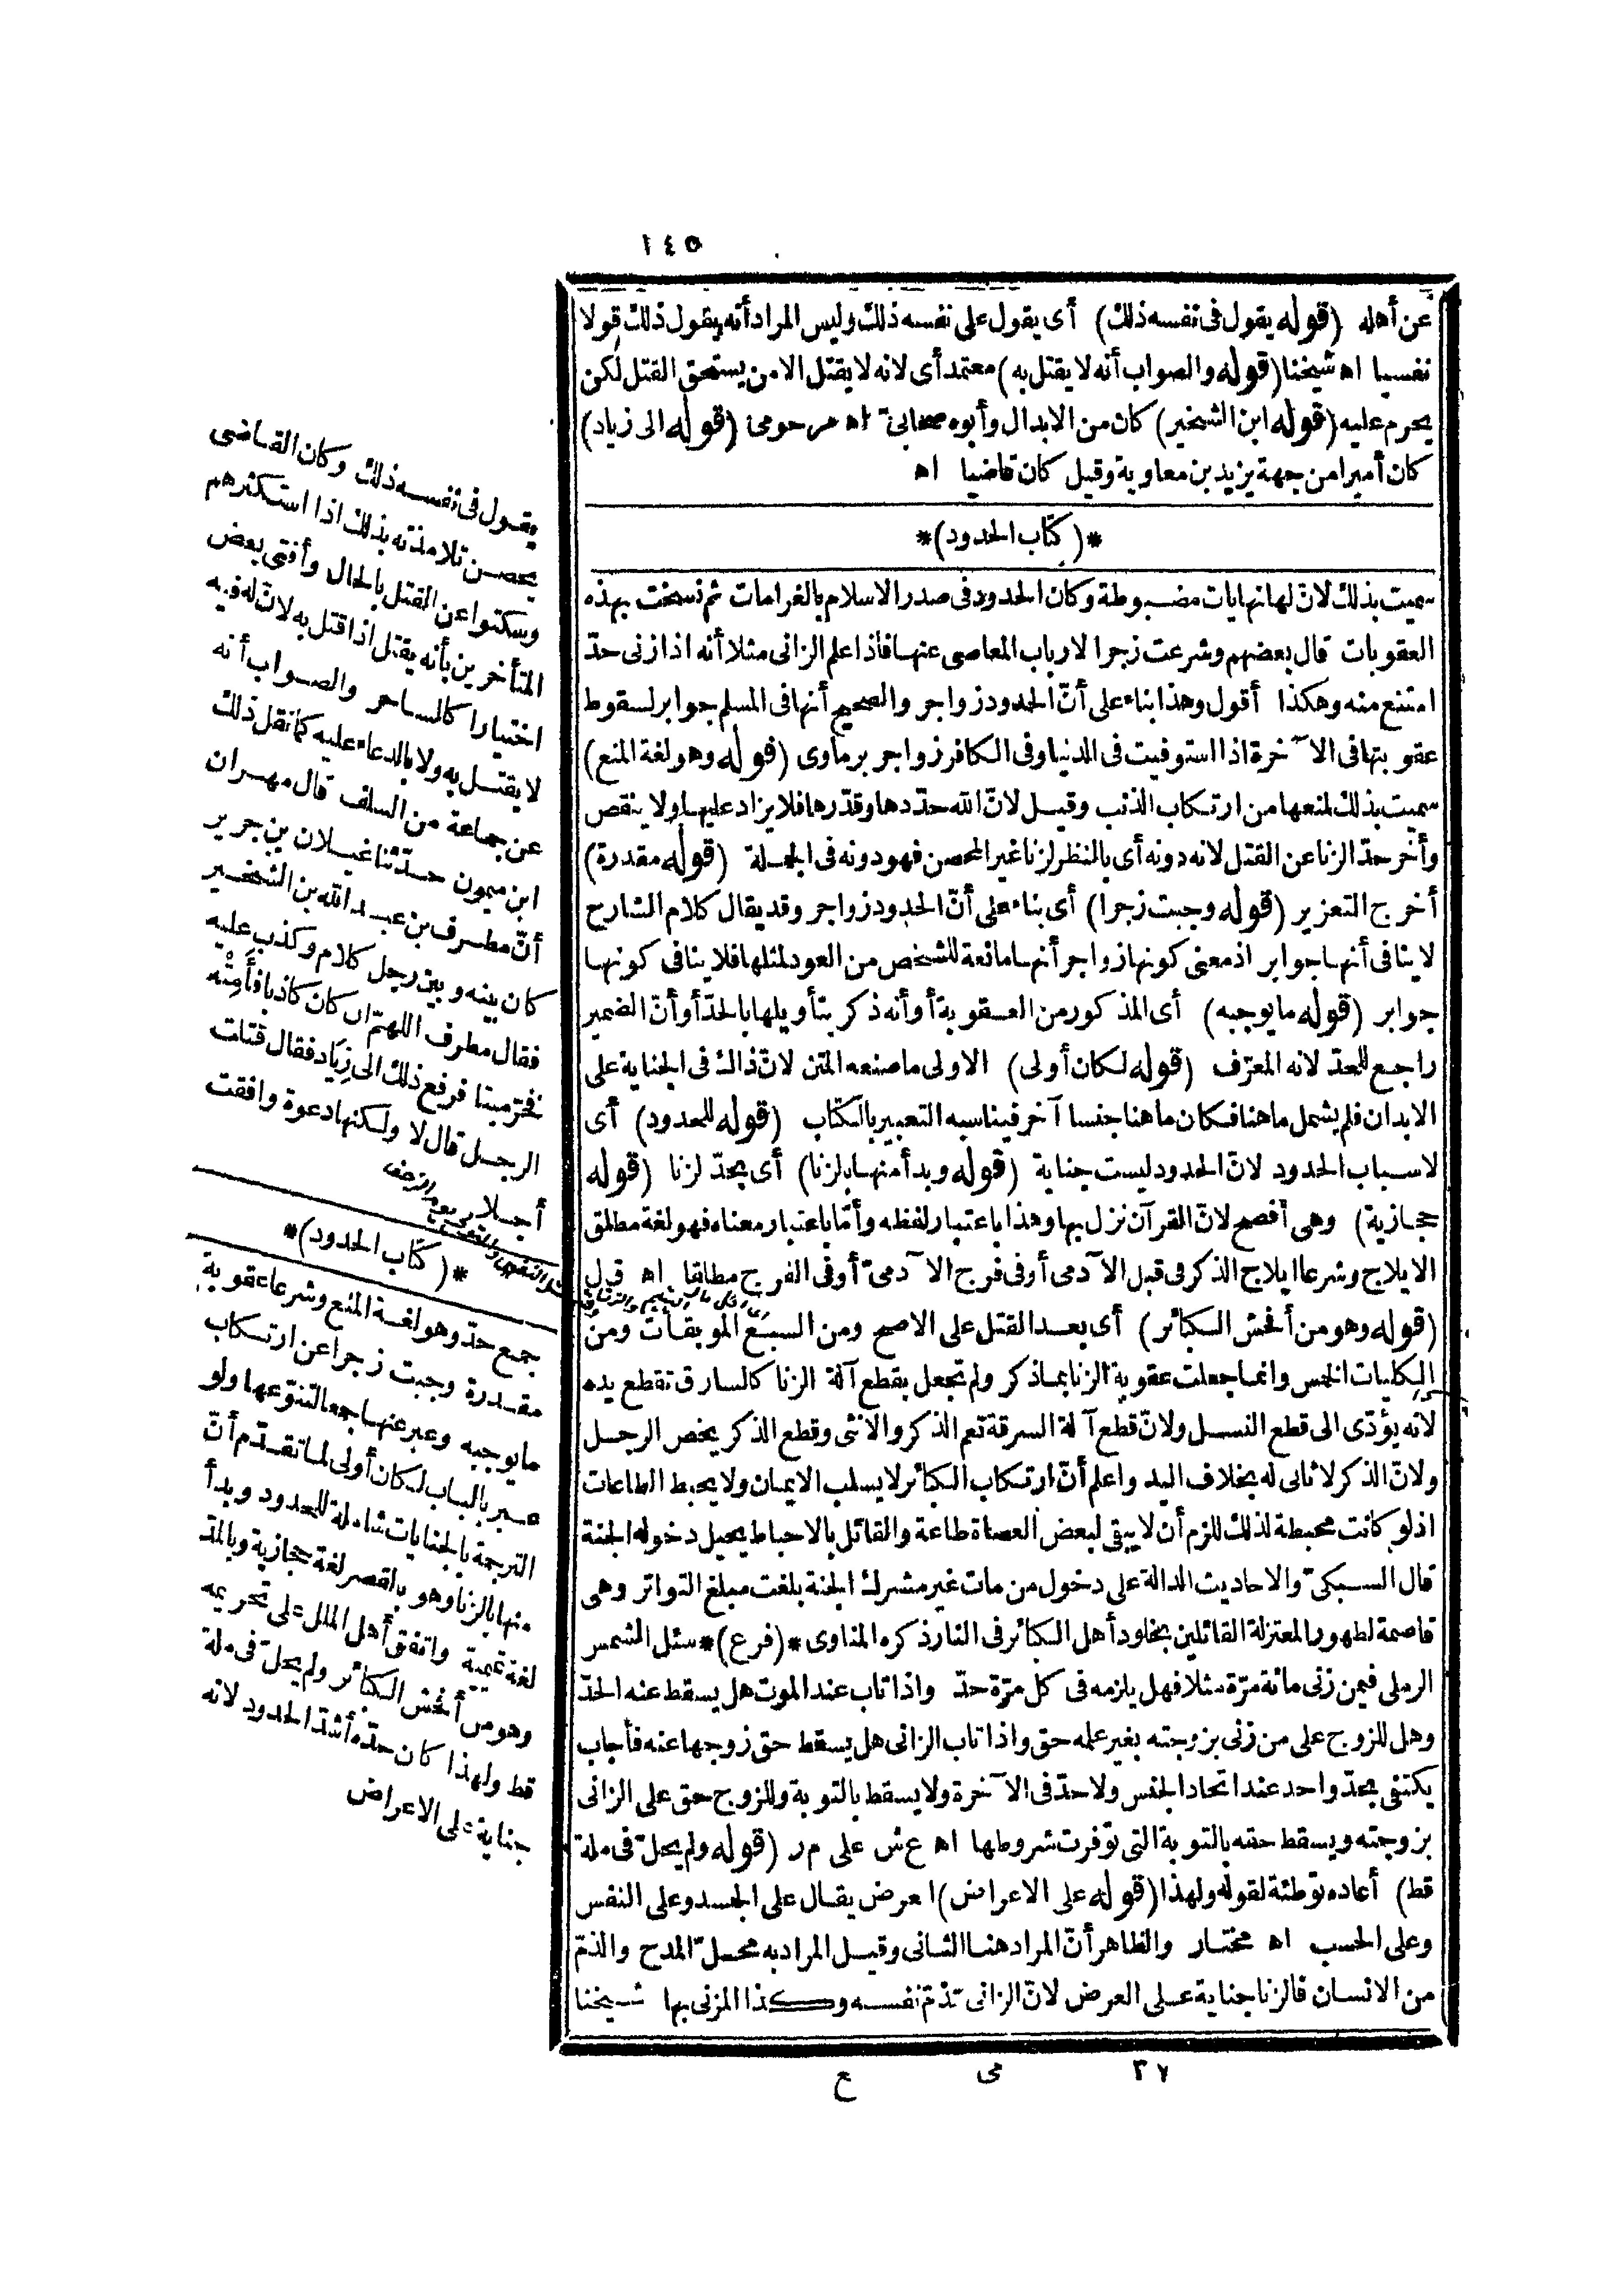 ١٤٥
عن أهله (قوله يقول فى نفسه ذلك) أى يقول على نفسه ذلك وليس المراد أنه يقول ذلك قولا
نفسيا اه شيخنا (قوله والصواب أنه لا يقتل به) معتمد أى لانه لا يقتل الا من يستحق القتل لكن
يحرم عليه (قوله ابن الشخير) كان من الابدال وأبوه صحابىّ اه مرحومى (قوله الى زياد)
كان أميرا من جهة يزيد بن معاوية وقيل كان قاضيا اه
*(كتاب الحدود)*
سميت بذلك لانّ لها نهايات مضبوطة وكان الحدود فى صدر الاسلام بالغرامات ثم نسخت بهذه
العقوبات قال بعضهم وشرعت زجرا لارباب المعاصى عنها فاذا علم الزانى مثلا أنه اذا زنى حدّ
امتنع منه وهكذا أقول وهذا بناء على أنّ الحدود زواجر والصحيح أنها فى المسلم جوابر لسقوط
عقوبتها فى الآخرة اذا استوفيت فى الدنيا وفى الكافر زواجر برماوى (قوله وهو لغة المنع)
سميت بذلك لمنعها من ارتكاب الذنب وقيل لانّ الله حدّدها وقدّرها فلا يزاد عليها ولا ينقص
وأخر حدّ الزنا عن القتل لانه دونه أى بالنظر لزنا غير المحصن فهو دونه فى الجملة (قوله مقدرة)
أخرج التعزير (قوله وجبت زجرا) أى بناء على أنّ الحدود زواجر وقد يقال كلام الشارح
لا ينافى أنها جوابر اذ معنى كونها زواجر أنها مانعة للشخص من العود لمثلها فلا ينافى كونها
جوابر (قوله ما يوجبه) أى المذكور من العقوبة أو أنه ذكر بتأويلها بالحدّ أو أنّ الضمير
راجع للحدّ لانه المعرّف (قوله لكان أولى) الاولى ما صنعه المتن لانّ ذاك فى الجناية على
الابدان فلم يشمل ما هنا فكان ما هنا جنسا آخر فيناسبه التعبير بالكتاب (قوله للحدود) أى
لاسباب الحدود لانّ الحدود ليست جناية (قوله وبدأ منها بالزنا) أى بحدّ لزنا (قوله
حجازية) وهى أفصح لانّ القرآن نزل بها وهذا باعتبار لفظه وأمّا باعتبار معناه فهو لغة مطلق
الايلاج وشرعا ايلاج الذكر فى قبل الآدمى أو فى فرج الآدمىّ أو فى الفرج مطلقا اه ق ل
(قوله وهو من أفحش الكبائر) أى بعد القتل على الاصح ومن السبع الموبقات ومن
الكليات الخمس وانما جعلت عقوبة الزنا بما ذكر ولم تجعل بقطع آلة الزنا كالسارق تقطع يده
لانه يؤدّى الى قطع النسل ولانّ قطع آلة السرقة تعم الذكر والانثى وقطع الذكر يخص الرجل
ولانّ الذكر لا ثانى له بخلاف اليد واعلم أنّ ارتكاب الكبائر لا يسلب الايمان ولا يحبط الطاعات
اذ لو كانت محبطة لذلك للزم أن لا يبقى لبعض العصاة طاعة والقائل بالاحباط يحيل دخوله الجنة
قال السبكىّ والاحاديث الدالة على دخول من مات غير مشرك الجنة بلغت مبلغ التواتر وهى
قاصمة لظهور المعتزلة القائلين بخلود أهل الكبائر فى النار ذكره المناوى *(فرع)* سئل الشمس
الرملى فيمن زنى مائة مرّة مثلا فهل يلزمه فى كل مرّة حدّ واذا تاب عند الموت هل يسقط عنه الحدّ
وهل للزوج على من زنى بزوجته بغير علمه حق واذا تاب الزانى هل يسقط حق زوجها عنه فأجاب
يكتفى بحدّ واحد عند اتحاد الجنس ولا حدّ فى الآخرة ولا يسقط بالتوبة وللزوج حق على الزانى
بزوجته ويسقط حقه بالتوبة التى توفرت شروطها اه ع ش على م ر (قوله ولم يحلّ فى ملة
قط) أعاده توطئة لقوله ولهذا (قوله على الاعراض) العرض يقال على الجسد وعلى النفس
وعلى الحسب اه مختار والظاهر أنّ المراد هنا الثانى وقيل المراد به محلّ المدح والذمّ
من الانسان فالزنا جناية على العرض لانّ الزانى تذمّ نفسه وكذا المزنى بها شيخنا
٣٧ مى ح
يقول فى نفسه ذلك وكان القاضى
يحصن تلامذته بذلك اذا استكثرهم
وسكتوا عن القتل بالحال وأفتى بعض
المتأخرين بأنه يقتل اذا قتل به لانّ له فيه
اختيارا كالساحر والصواب أنه
لا يقتل به ولا بالدعاء عليه كما نقل ذلك
عن جماعة من السلف قال مهران
ابن ميمون حدّثنا غيلان بن جرير
أنّ مطرف بن عبد الله بن الشخير
كان بينه وبين رجل كلام وكذب عليه
فقال مطرف اللهمّ ان كان كاذبا فأمته
فخرّ ميتا فرفع ذلك الى زياد فقال قتلت
الرجل قال لا ولكنها دعوة وافقت
أجلا
*(كتاب الحدود)*
جمع حدّ وهو لغة المنع وشرعا عقوبة
مقدرة وجبت زجرا عن ارتكاب
ما يوجبه وعبر عنها جمعا لتنوّعها ولو
عبر بالباب لكان أولى لما تقدّم أنّ
الترجمة بالجنايات شاملة للحدود وبدأ
منها بالزنا وهو بالقصر لغة حجازية وبالمدّ
لغة تميمية واتفق أهل الملل على تحريمه
وهو من أفحش الكبائر ولم يحلّ فى ملة
قط ولهذا كان حدّه أشدّ الحدود لانه
جناية على الاعراض